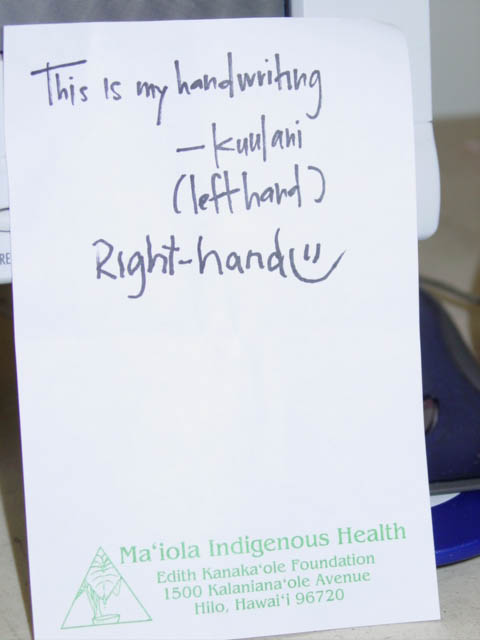 This is my handwriting
- Kuulani
(left hand)
Right-hand
Ma‘iola Indigenous Health
Edith Kanaka‘ole Foundation
1500 Kalaniana‘ole Avenue
Hilo, Hawai‘i 96720
RE